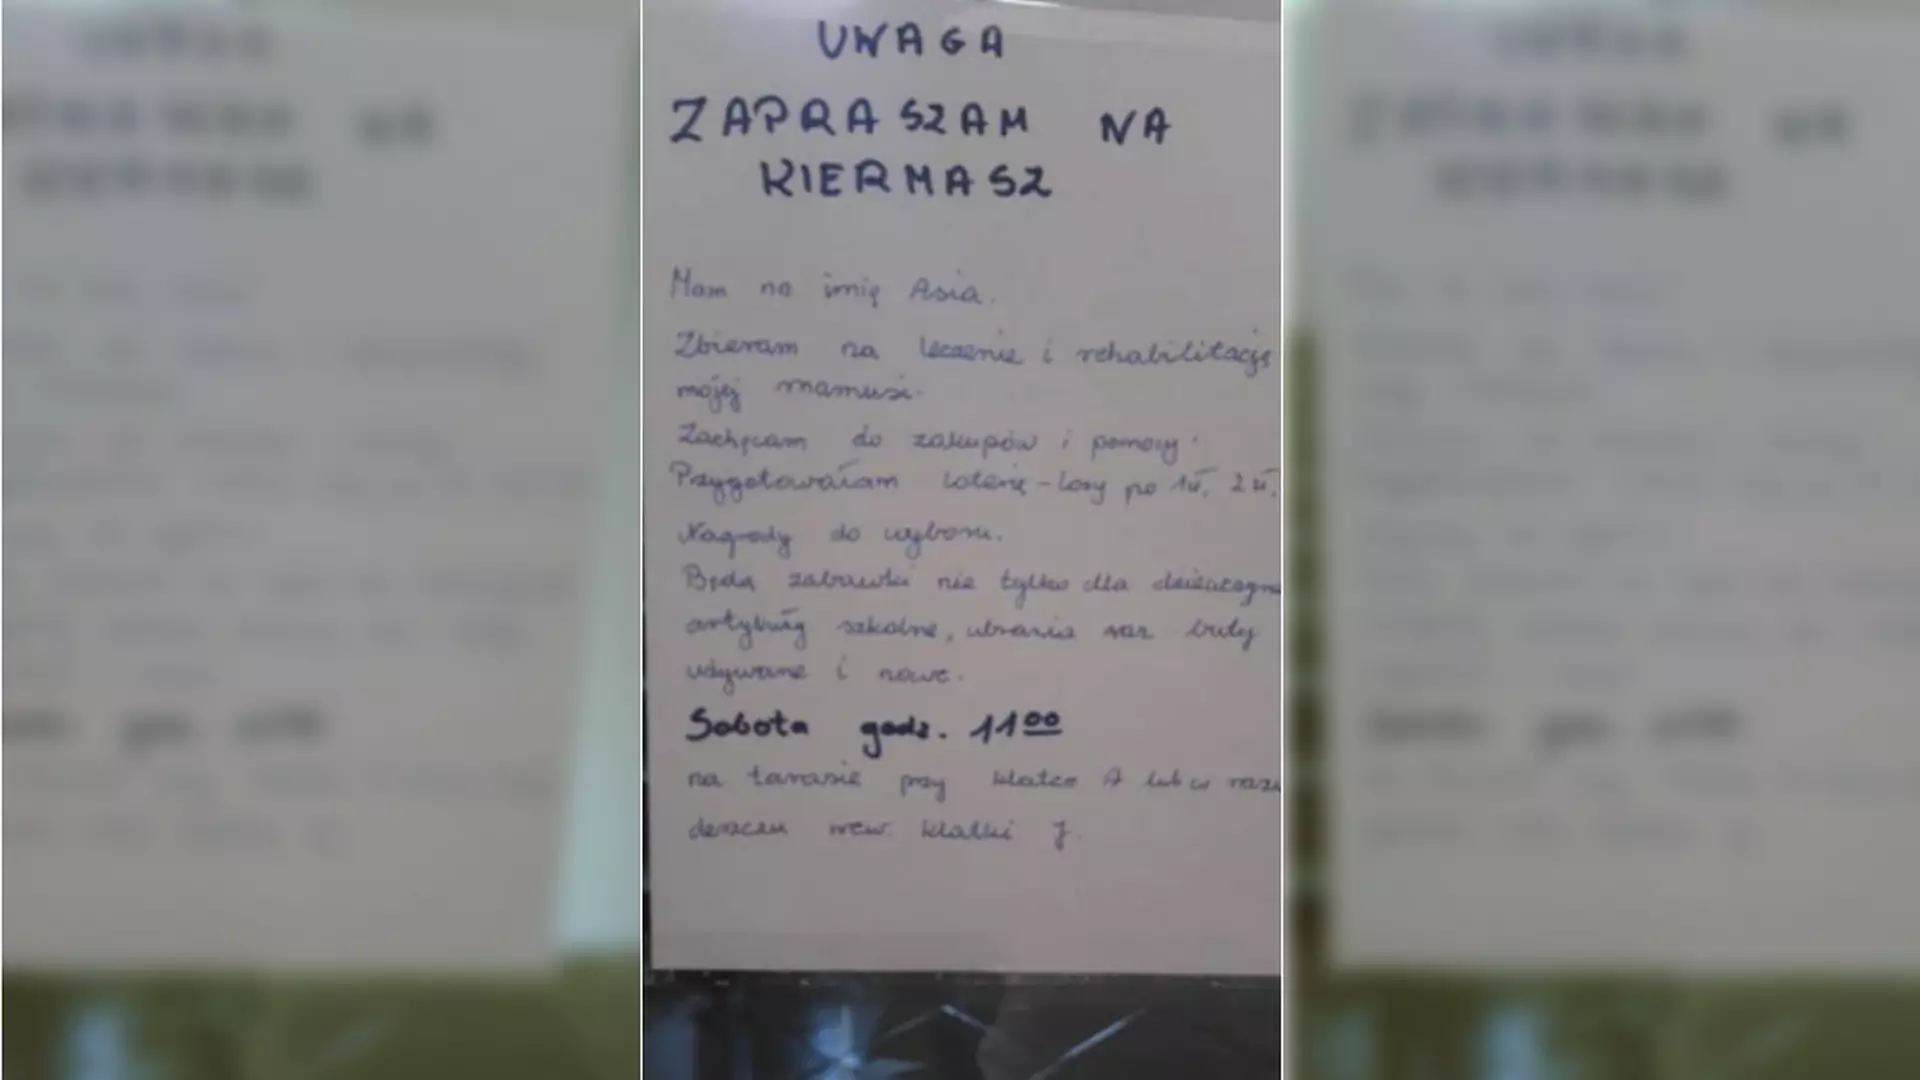 UWAGA
ZAPRASZAM NA
KIERMASZ
Mam na imię Asia.
Zbieram na leczenie i rehabilitację
mojej mamusi.
Zachęcam do zakupów i pomocy.
Przygotowałam loterię - losy po 1 zł, 2 zł,
Nagrody do wyboru.
Będą zabawki nie tylko dla
artykuły szkolne, ubrania oraz buty
używane i nowe.
Sobota godz. 11 00
na tarasie przy klatce A lub w
deszczu wew. klatki J.